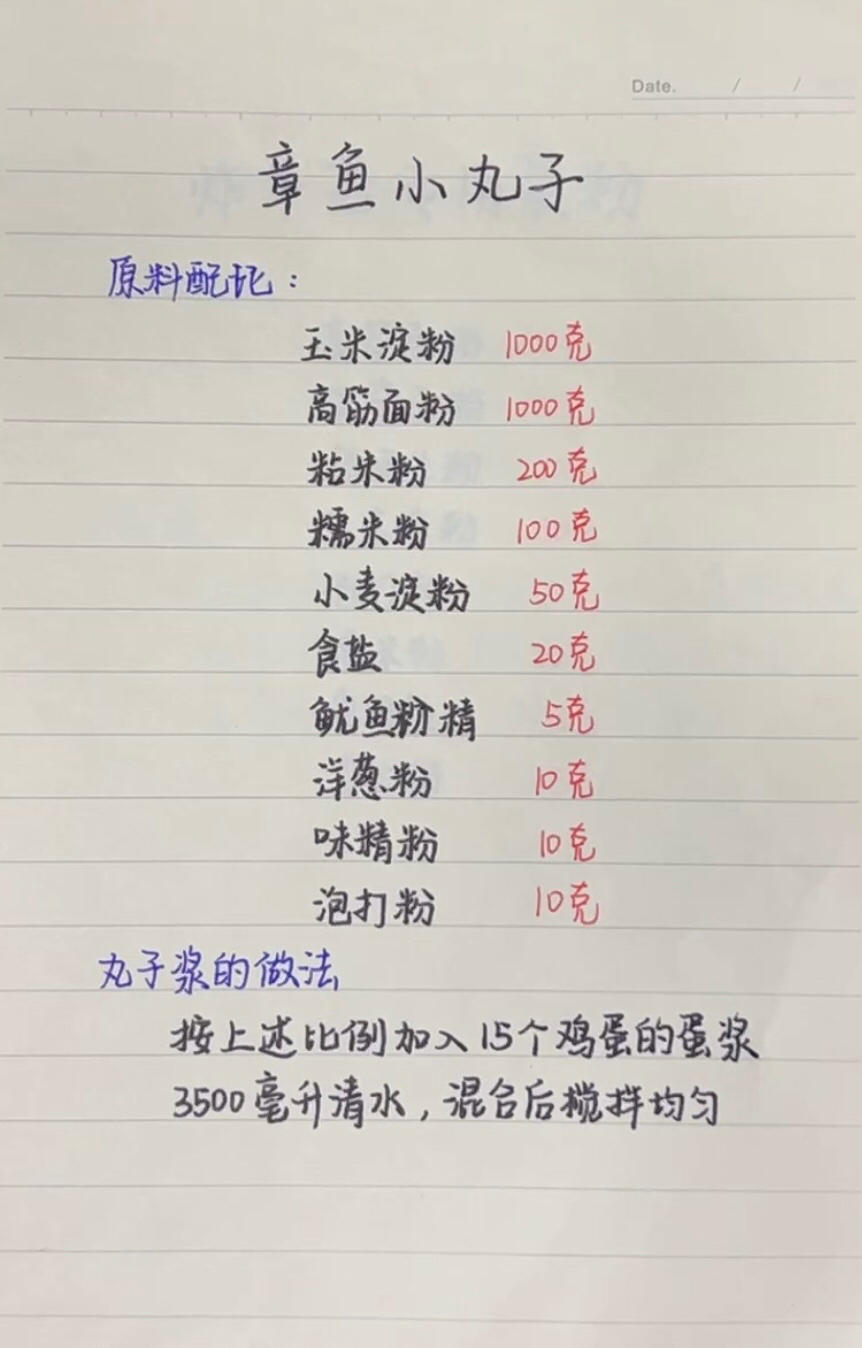 Date. / /
章鱼小丸子
原料配比：
玉米淀粉 1000克
高筋面粉 1000克
粘米粉 200克
糯米粉 100克
小麦淀粉 50克
食盐 20克
鱿鱼粉精 5克
洋葱粉 10克
味精粉 10克
泡打粉 10克
丸子浆的做法
按上述比例加入15个鸡蛋的蛋浆
3500毫升清水，混合后搅拌均匀